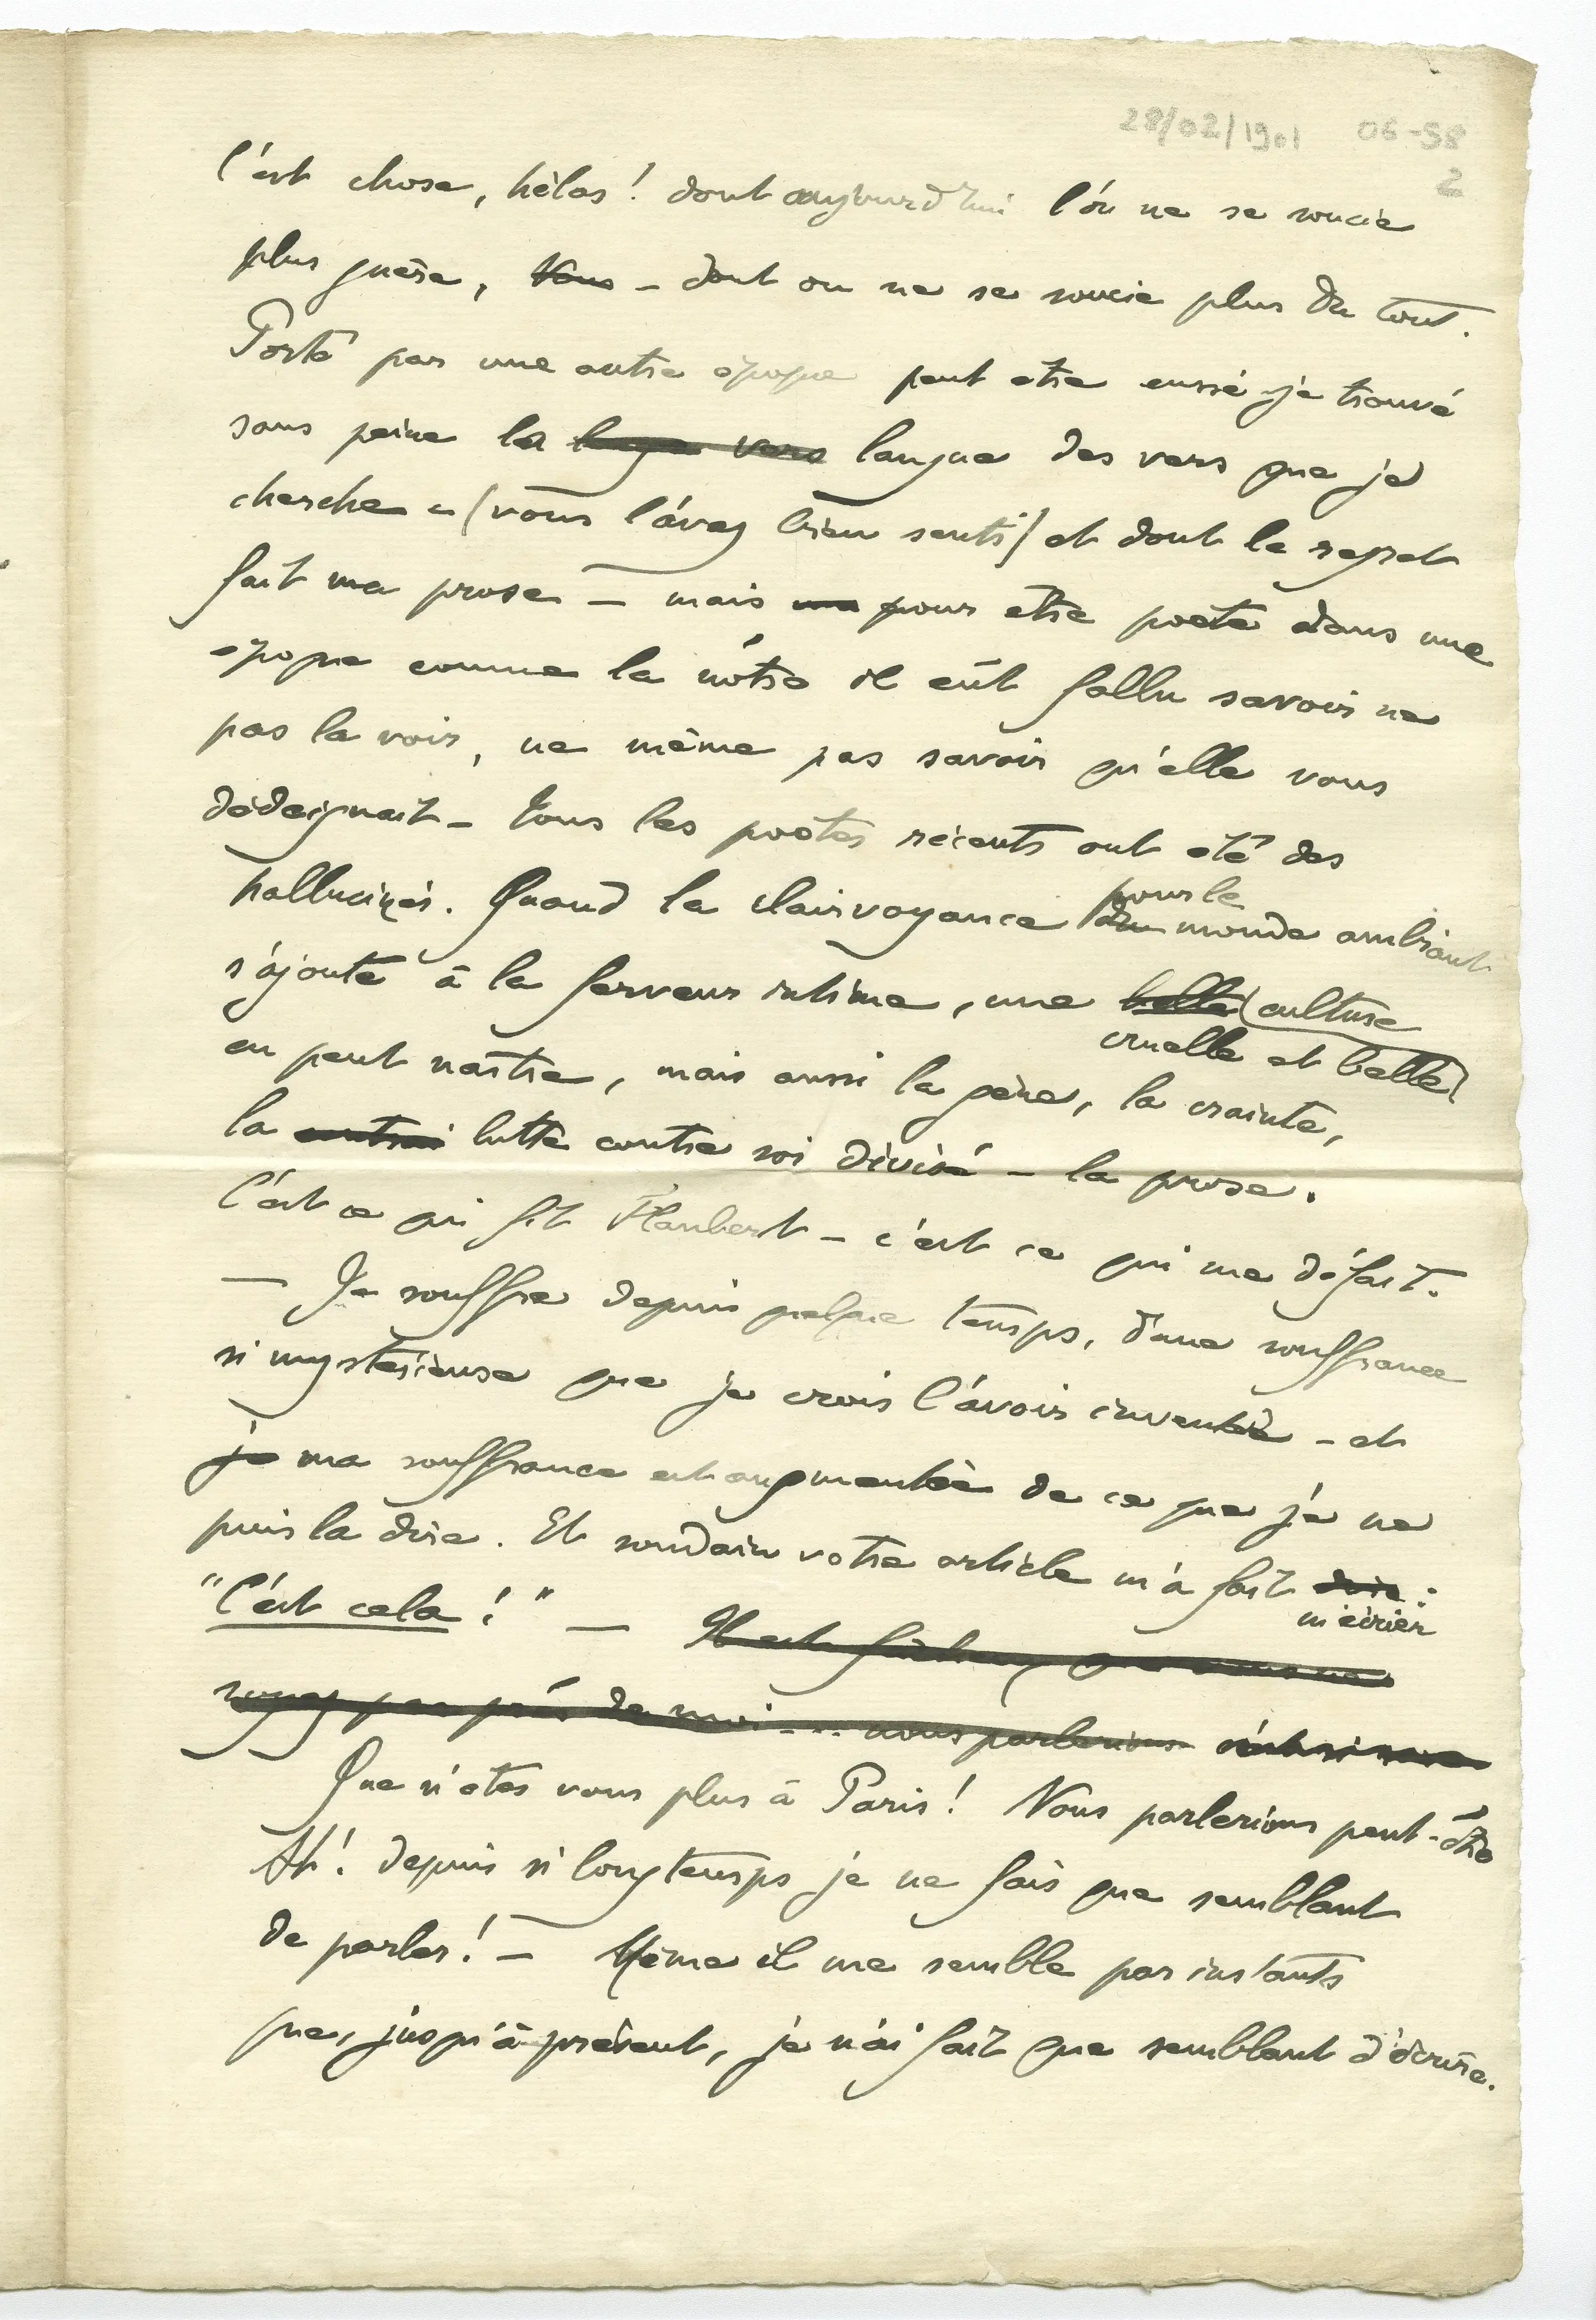 28/02/1901 06-98
2
C'est chose, hélas! dont aujourd'hui l'on ne se soucie
plus guère, Vous – dont on ne se soucie plus du tout.
Porté par une autre époque peut etre eussé-je trouvé
sans peine la langue vers langue des vers que je
cherche – (vous l'avez bien senti) et dont le regret
fait ma prose – mais pour etre poète dans une
époque comme la nôtre il eût fallu savoir ne
pas la voir, ne même pas savoir qu'elle vous
dédaignait – Tous les poètes récents ont été des
hallucinés. Quand la clairvoyance du monde ambiant
pour le
s'ajoute à la ferveur intime, une belle culture
cruelle et belle
en peut naître, mais aussi la gène, la crainte,
la lutte contre soi divisé – la prose.
C'est ce qui fit Flaubert – c'est ce qui me défait.
– Je souffre depuis quelque temps, d'une souffrance
si mystérieuse que je crois l'avoir inventée – et
je ma souffrance est augmentée de ce que je ne
puis la dire. Et soudain votre article m'a fait dire :
m'écrier
"C'est cela!" – Il est fâcheux que vous ne
soyez pas près de moi... nous parlerions
Que n'etes vous plus à Paris! Nous parlerions peut-être
Ah! depuis si longtemps je ne fais que semblant
de parler! – Même il me semble par instants
que, jusqu'à présent, je n'ai fait que semblant d'écrire.